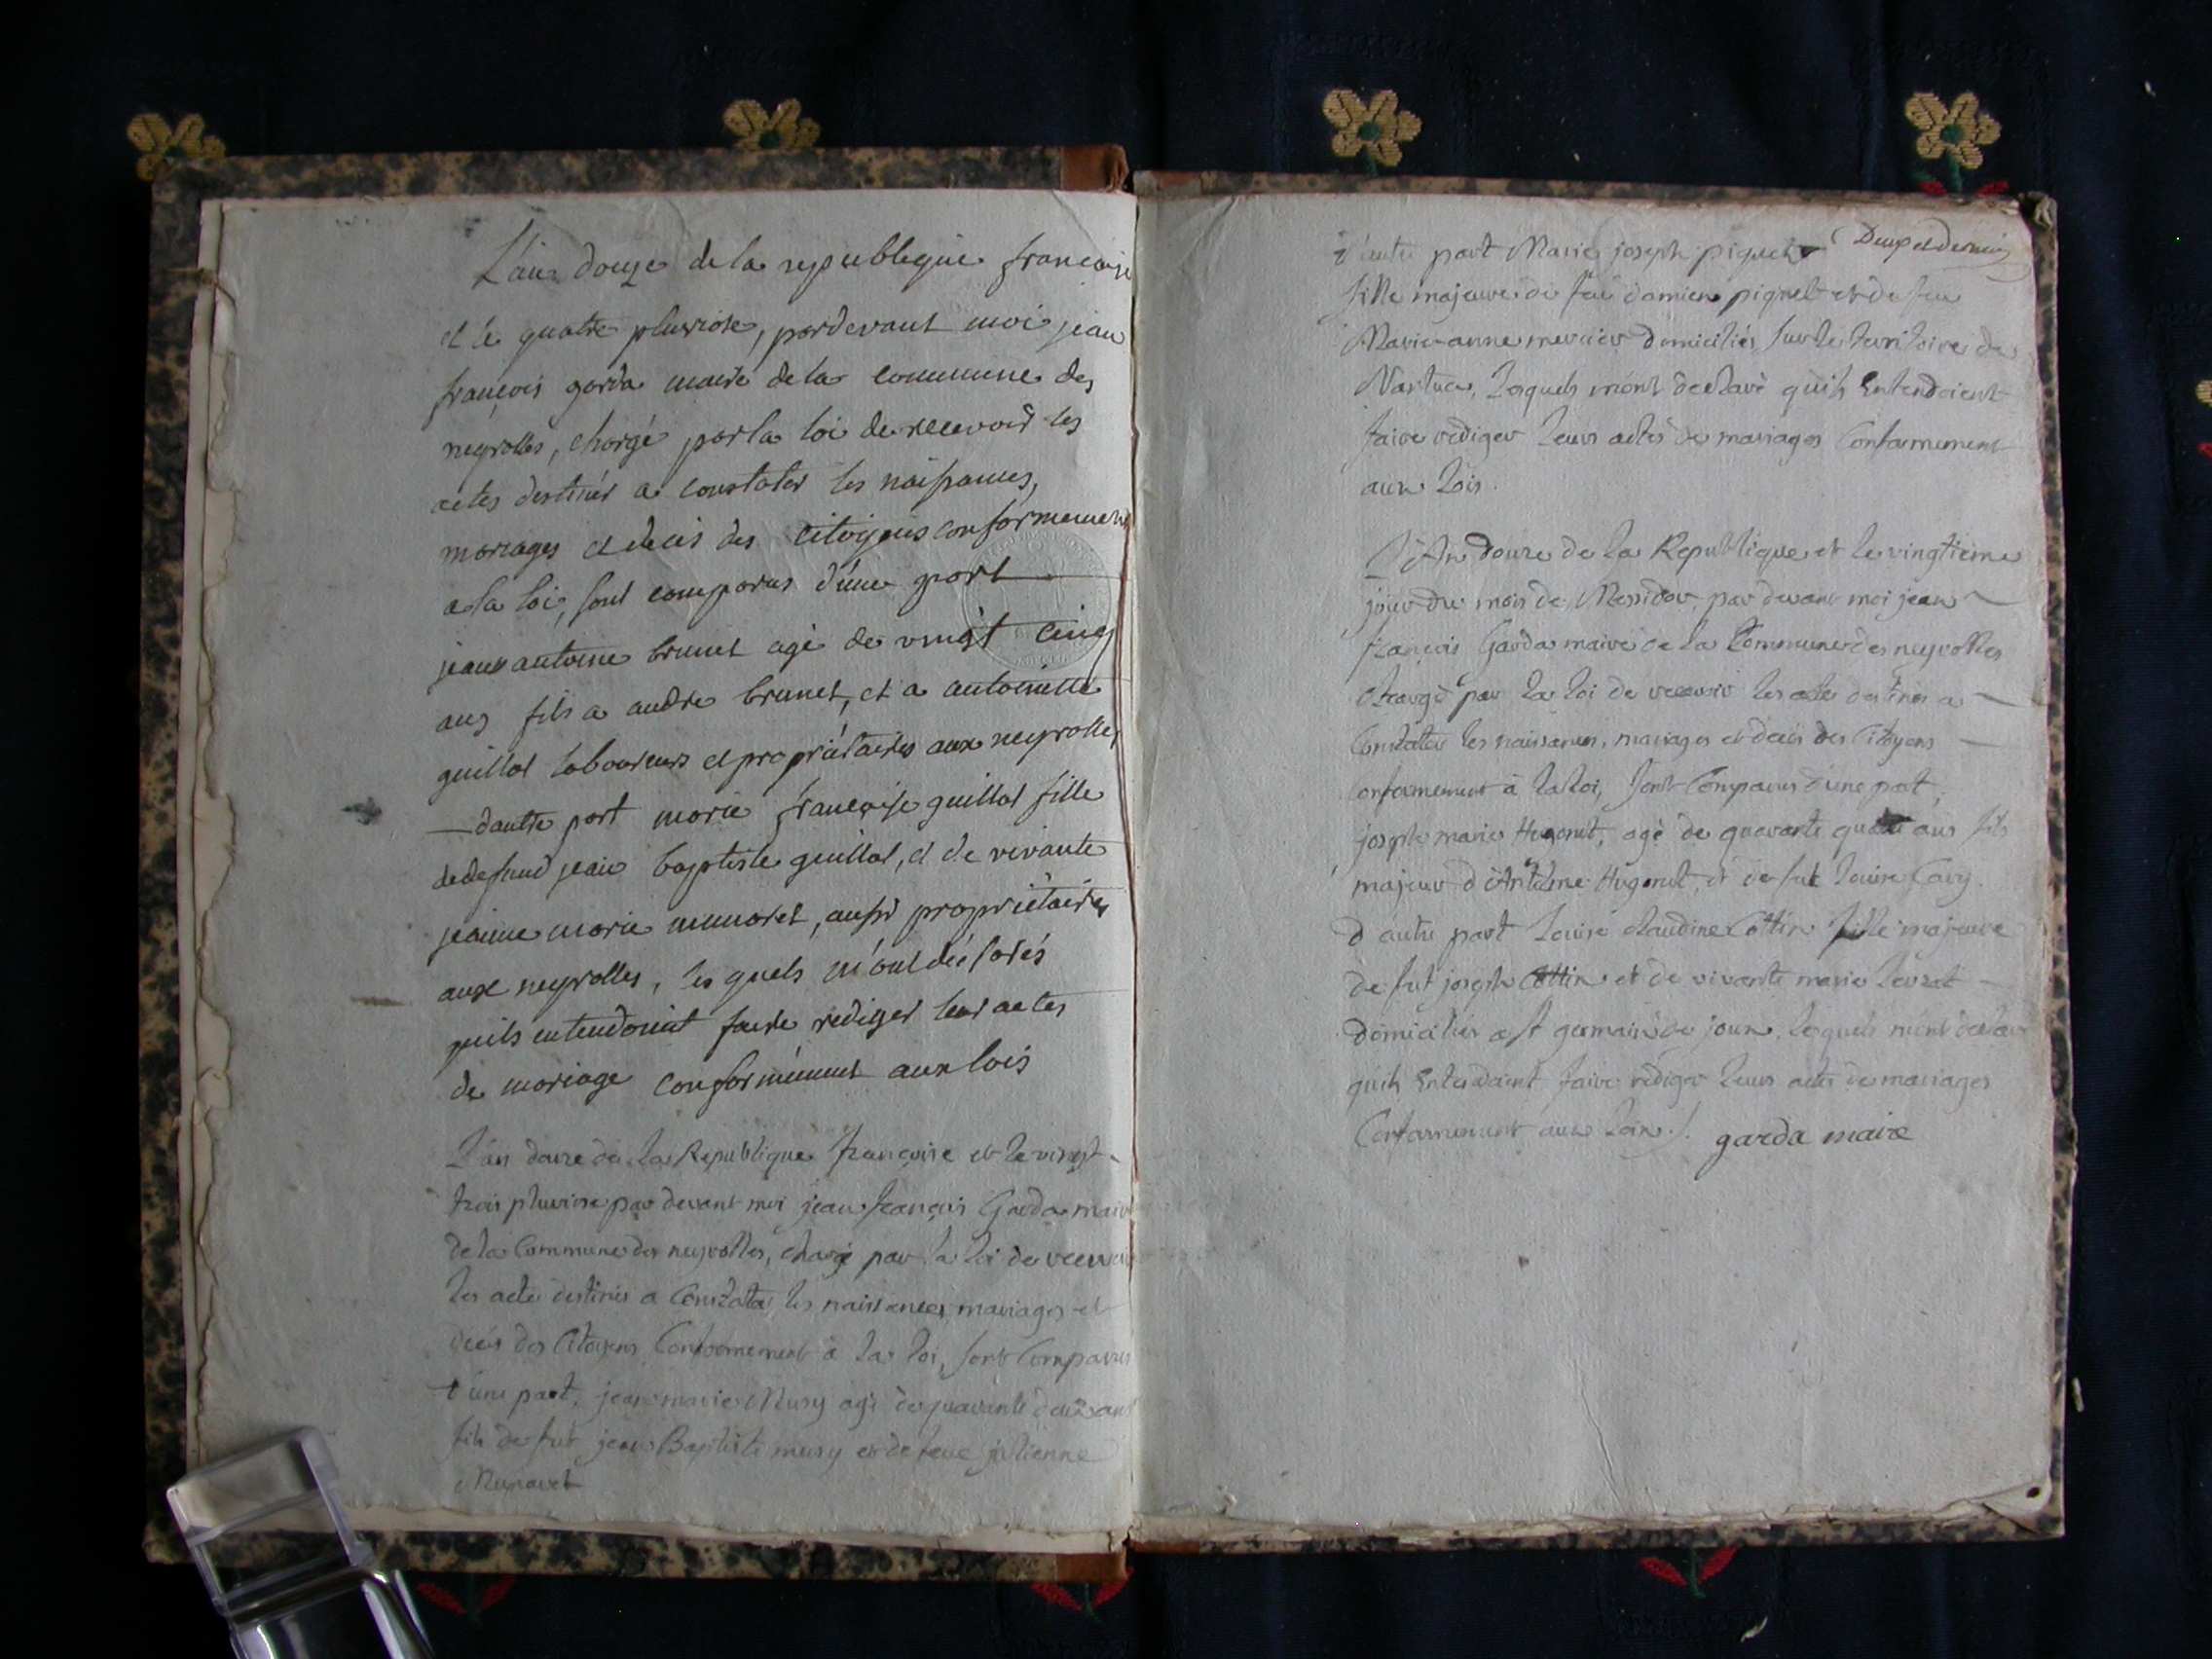 L'an douze de la republique francaise
et le quatre pluviose, pardevant moi jean
françois garda maire de la commune des
neyrolles, chargé par la loi de recevoir les
actes destinés a constater les naissances,
mariages et decés des citoyens conformement
a la loi, sont comparus d'une part
jean antoine brunet agé de vingt cinq
ans fils a andre brunet, et a antoinette
guillot laboureurs et propriétaires aux neyrolles
dautre part marie françoise guillot fille
de defund jean baptiste guillot, et de vivante
jeanne marie munaret, aussi propriétaires
aux neyrolles, les quels m'ont déclarés
quils entendoient faire rediger leur actes
de mariage conformément aux lois
L'an douze de la Republique françoise et le vingt
trois pluviose par devant moi jean françois Garda maire
de la Commune des neyrolles, chargé par la loi de recevoir
les acte destinés a Constater les naissances mariages et
decés des Citoyens Conformement à la loi, sont Comparus
d'une part, jean marie Musy agé de quarante deux ans
fils de fut jean Baptiste musy et de feue julienne
Munaret
Deux et dernier
d'autre part Marie joseph piquet
fille majeure de feu damien piquet et de feue
Marie anne mercier domiciliés sur le territoire de
Nantua, lesquels m'ont declaré qu'ils Entendoient
faire rediger leurs actes de mariages Conformement
aux lois.
L'An douze de la Republique et le vingtieme
jour du mois de Messidor, par devant moi jean
françois Garda maire de la Commune des neyrolles
chargé par la loi de recevoir les acte destinés a
Constater les naissances, mariages et decés des Citoyens
Conformement à la loi, sont Comparus d'une part,
joseph marie Hugonet, agé de quarante quatre ans fils
majeur d'Antelme Hugonet, et de fut louise Cary.
d'autre part louise claudine Cottin fille majeure
de fut joseph Cottin et de vivante marie levrat
domiciliés a st germain de joux, lesquels m'ont declaré
qu'ils Entendoient faire rédiger leurs actes de mariages
Conformement aux loix ./. garda maire